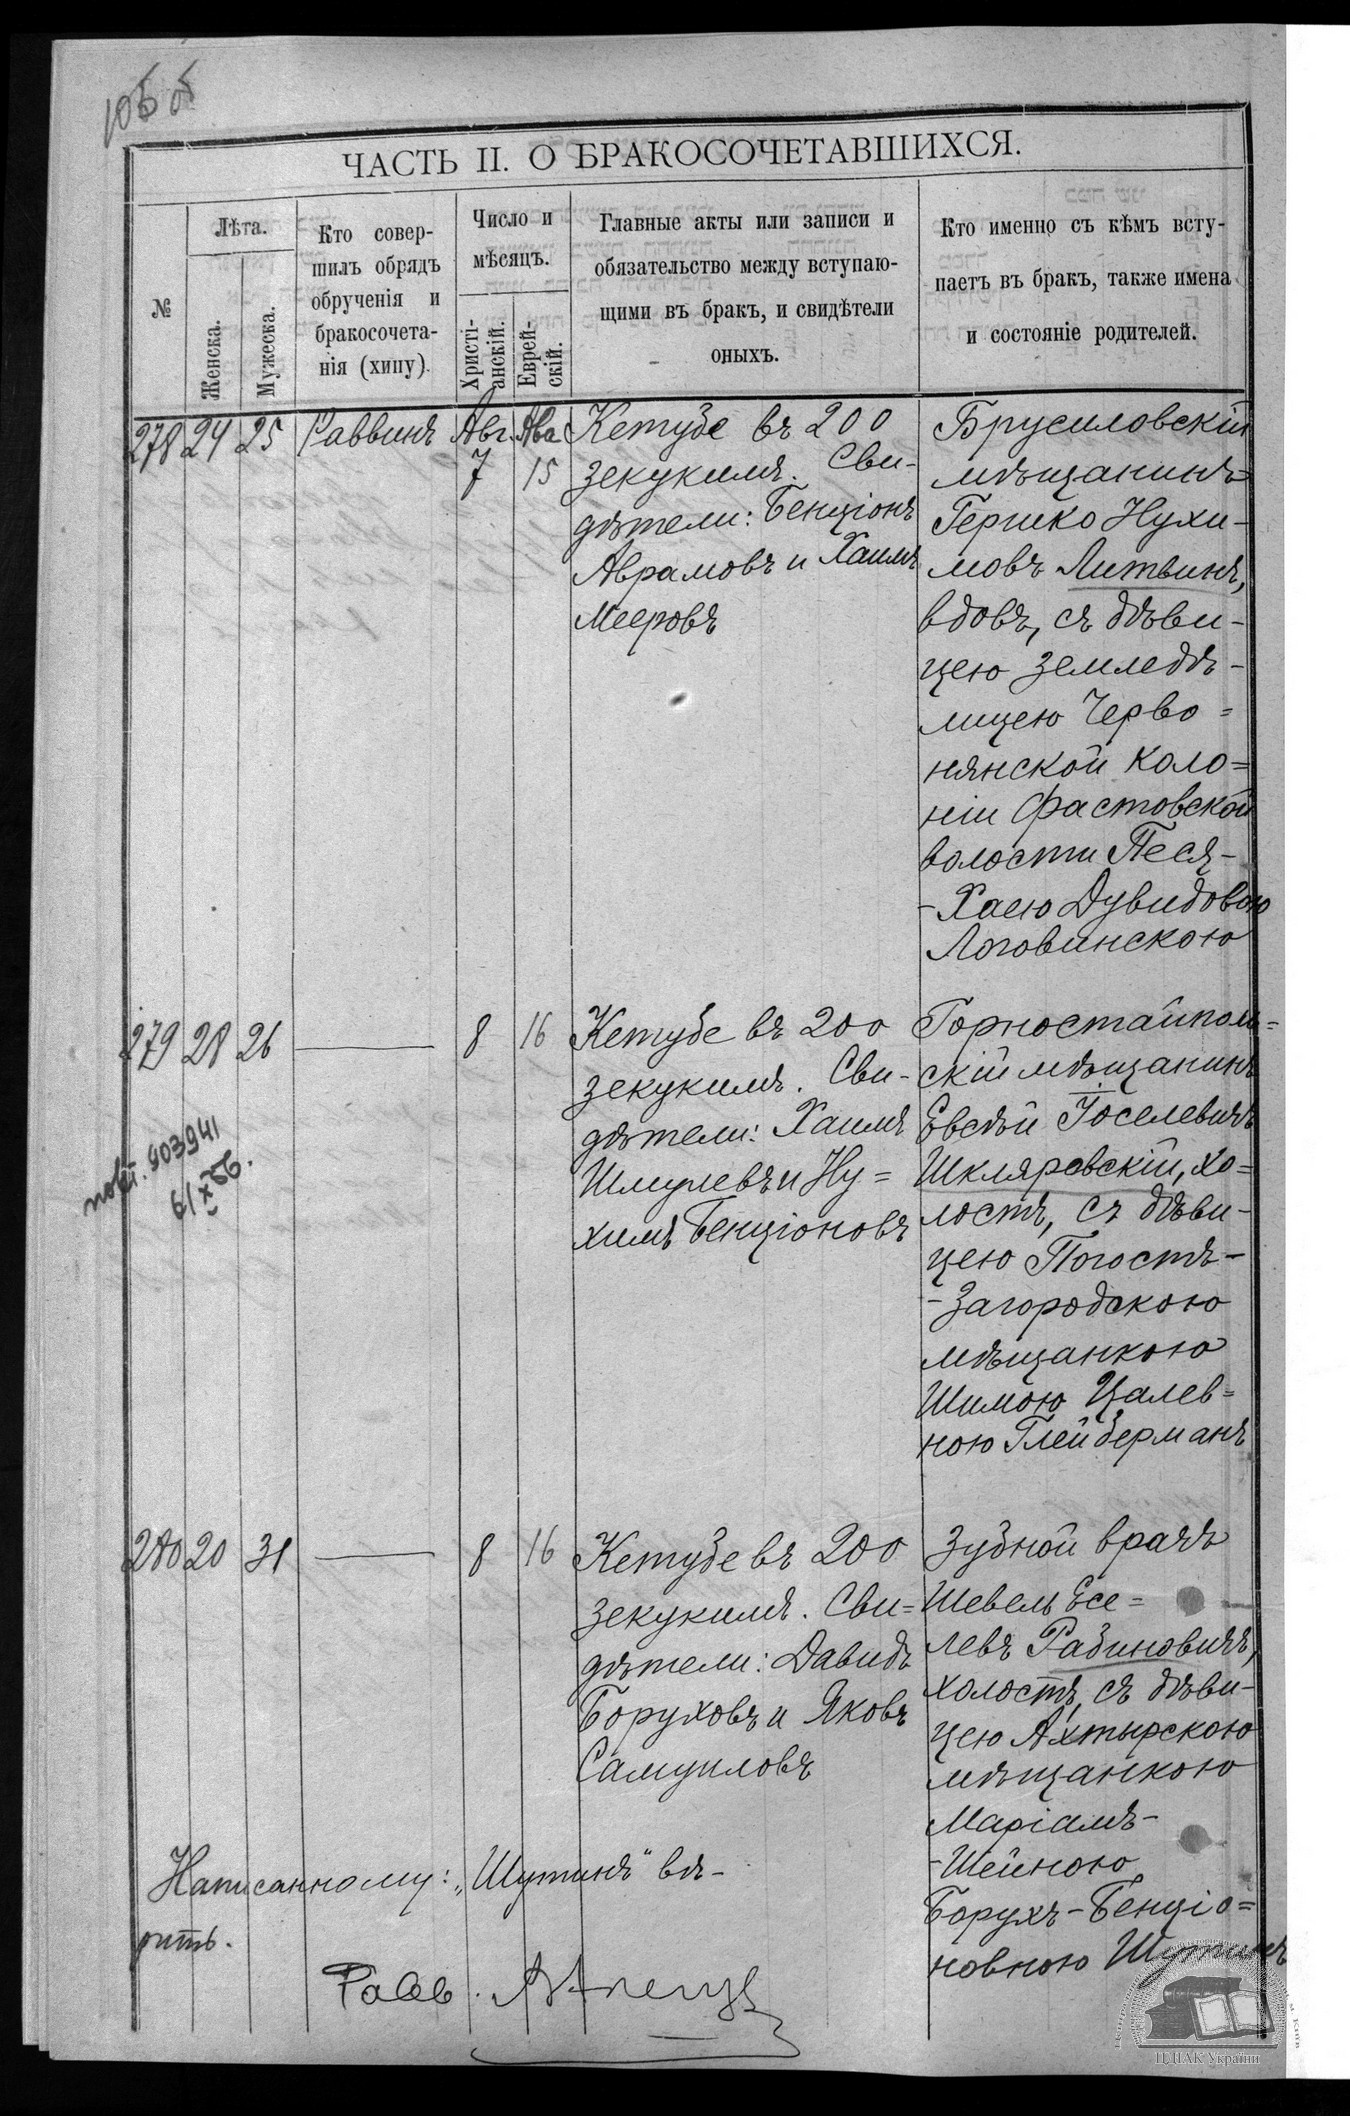 ЧАСТЬ II. О БРАКОСОЧЕТАВШИХСЯ.
№
Лѣта.
Женска.
Мужеска.
Кто совер-
шилъ обрядъ
обрученія и
бракосочета-
нія (хипу).
Число и
мѣсяцъ.
Христі-
анскій.
Еврей-
скій.
Главные акты или записи и
обязательство между вступаю-
щими въ бракъ, и свидѣтели
оныхъ.
Кто именно съ кѣмъ всту-
паетъ въ бракъ, также имена
и состояніе родителей.
278 24 25 Раввинъ Авг. Ава
7 15
Кетубе въ 200
зекукимъ. Сви-
дѣтели: Бенціонъ
Аврамовъ и Хаимъ
Мееровъ
Брусиловскій
мѣщанинъ
Гершко Нухи-
мовъ Литвинъ,
вдовъ, съ дѣви-
цею земледѣ-
лицею Черво=
нянской коло=
ніи Фастовской
волости Песя-
-Хаею Дувидовою
Логовинскою
279 28 26 8 16
Кетубе въ 200
зекукимъ. Сви-
дѣтели: Хаимъ
Шмулевъ и Ну=
химъ Бенціоновъ
Горностайполь=
скій мѣщанинъ
Евсѣй Іоселевичъ
Шкляревскій, хо=
лостъ, съ дѣви-
цею Погостъ-
-Загородскою
мѣщанкою
Шимою Цалев=
ною Глейберманъ
903941
280 20 31 8 16
Кетубе въ 200
зекукимъ. Сви=
дѣтели: Давидъ
Боруховъ и Яковъ
Самуиловъ
Зубной врачъ
Шевель Есе=
левъ Рабиновичъ,
холостъ, съ дѣви-
цею Ахтырскою
мѣщанкою
Маріамъ-
-Шейною
Борухъ-Бенціо=
новною Шутинъ
Написанному: „Шутинъ" вѣ-
рить.
Равв.
ЦДІАК України